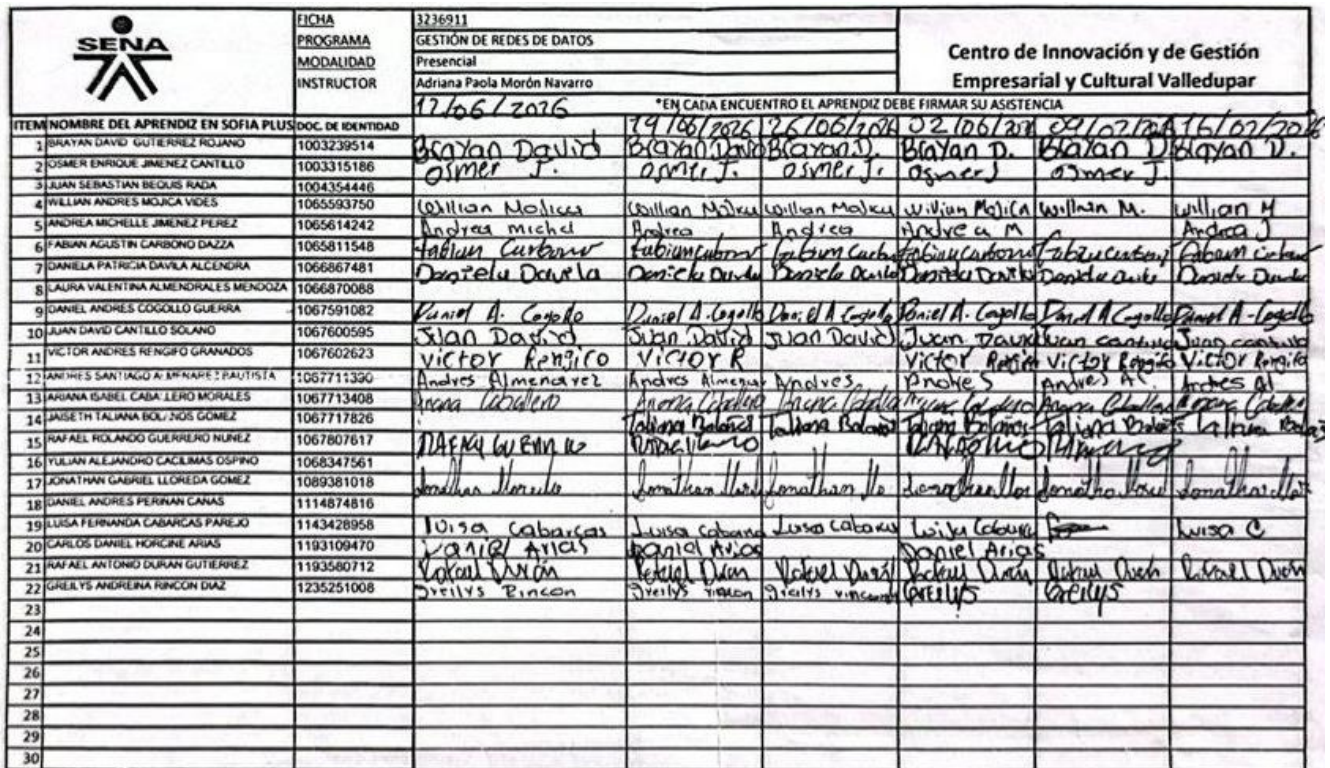 SENA
FICHA 3236911
PROGRAMA GESTIÓN DE REDES DE DATOS
MODALIDAD Presencial
INSTRUCTOR Adriana Paola Morón Navarro
Centro de Innovación y de Gestión
Empresarial y Cultural Valledupar
12/06/2026 *EN CADA ENCUENTRO EL APRENDIZ DEBE FIRMAR SU ASISTENCIA
ITEM NOMBRE DEL APRENDIZ EN SOFIA PLUS DOC. DE IDENTIDAD 19/06/2026 26/06/2026 02/06/2026 09/07/2026 16/07/2026
1 BRAYAN DAVID GUTIERREZ ROJANO 1003239514 Brayan David Brayan David Brayan D. Brayan D. Brayan D Brayan D.
2 OSMER ENRIQUE JIMENEZ CANTILLO 1003315186 Osmer J. Osmer J. Osmer J. Osmer J Osmer J.
3 JUAN SEBASTIAN BEQUIS RADA 1004354446
4 WILLIAN ANDRES MOJICA VIDES 1065593750 Willian Mojica Willian Mojica Willian Mojica Willian Mojica Willian M. Willian M
5 ANDREA MICHELLE JIMENEZ PEREZ 1065614242 Andrea michel Andrea Andrea Andrea M Andrea J
6 FABIAN AGUSTIN CARBONO DAZZA 1065811548 Fabian Carbono Fabian Carbono Fabian Carbono Fabian Carbono Fabian Carbono Fabian Carbono
7 DANIELA PATRICIA DAVILA ALCENDRA 1066867481 Daniela Davila Daniela Davila Daniela Davila Daniela Davila Daniela Davila Daniela Davila
8 LAURA VALENTINA ALMENDRALES MENDOZA 1066870088
9 DANIEL ANDRES COGOLLO GUERRA 1067591082 Daniel A. Cogollo Daniel A. Cogollo Daniel A Cogollo Daniel A. Cogollo Daniel A Cogollo Daniel A. Cogollo
10 JUAN DAVID CANTILLO SOLANO 1067600595 Juan David Juan David Juan David Juan David Juan cantillo Juan cantillo
11 VICTOR ANDRES RENGIFO GRANADOS 1067602623 Victor Rengifo Victor R Victor Rengifo Victor Rengifo Victor Rengifo
12 ANDRES SANTIAGO ALMENAREZ BAUTISTA 1067711390 Andres Almenarez Andres Almenar Andres Andres Andres A. Andres Al
13 ARIANA ISABEL CABALLERO MORALES 1067713408 Ariana Caballero Ariana Caballero Ariana Caballero Ariana Caballero Ariana Caballero Ariana Caballero
14 JAISETH TALIANA BOLAÑOS GOMEZ 1067717826 Taliana Bolaños Taliana Bolaños Taliana Bolaños Taliana Bolaños Taliana Bolaños
15 RAFAEL ROLANDO GUERRERO NUÑEZ 1067807617
16 YULIAN ALEJANDRO CACILIMAS OSPINO 1068347561
17 JONATHAN GABRIEL LLOREDA GOMEZ 1089381018 Jonathan Jonathan Jonathan Jonathan Jonathan Jonathan
18 DANIEL ANDRES PERIÑAN CAÑAS 1114874816
19 LUISA FERNANDA CABARCAS PAREJO 1143428958 Luisa Cabarcas Luisa Cabarca Luisa Cabarca Luisa Luisa C
20 CARLOS DANIEL HORCINE ARIAS 1193109470 Daniel Arias Daniel Arias Daniel Arias
21 RAFAEL ANTONIO DURAN GUTIERREZ 1193580712 Rafael Durán Rafael Duran Rafael Durán Rafael Duran Rafael Duran Rafael Duran
22 GREILYS ANDREINA RINCON DIAZ 1235251008 Greilys Rincon Greilys rincon Greilys rincon Greilys Greilys
23
24
25
26
27
28
29
30